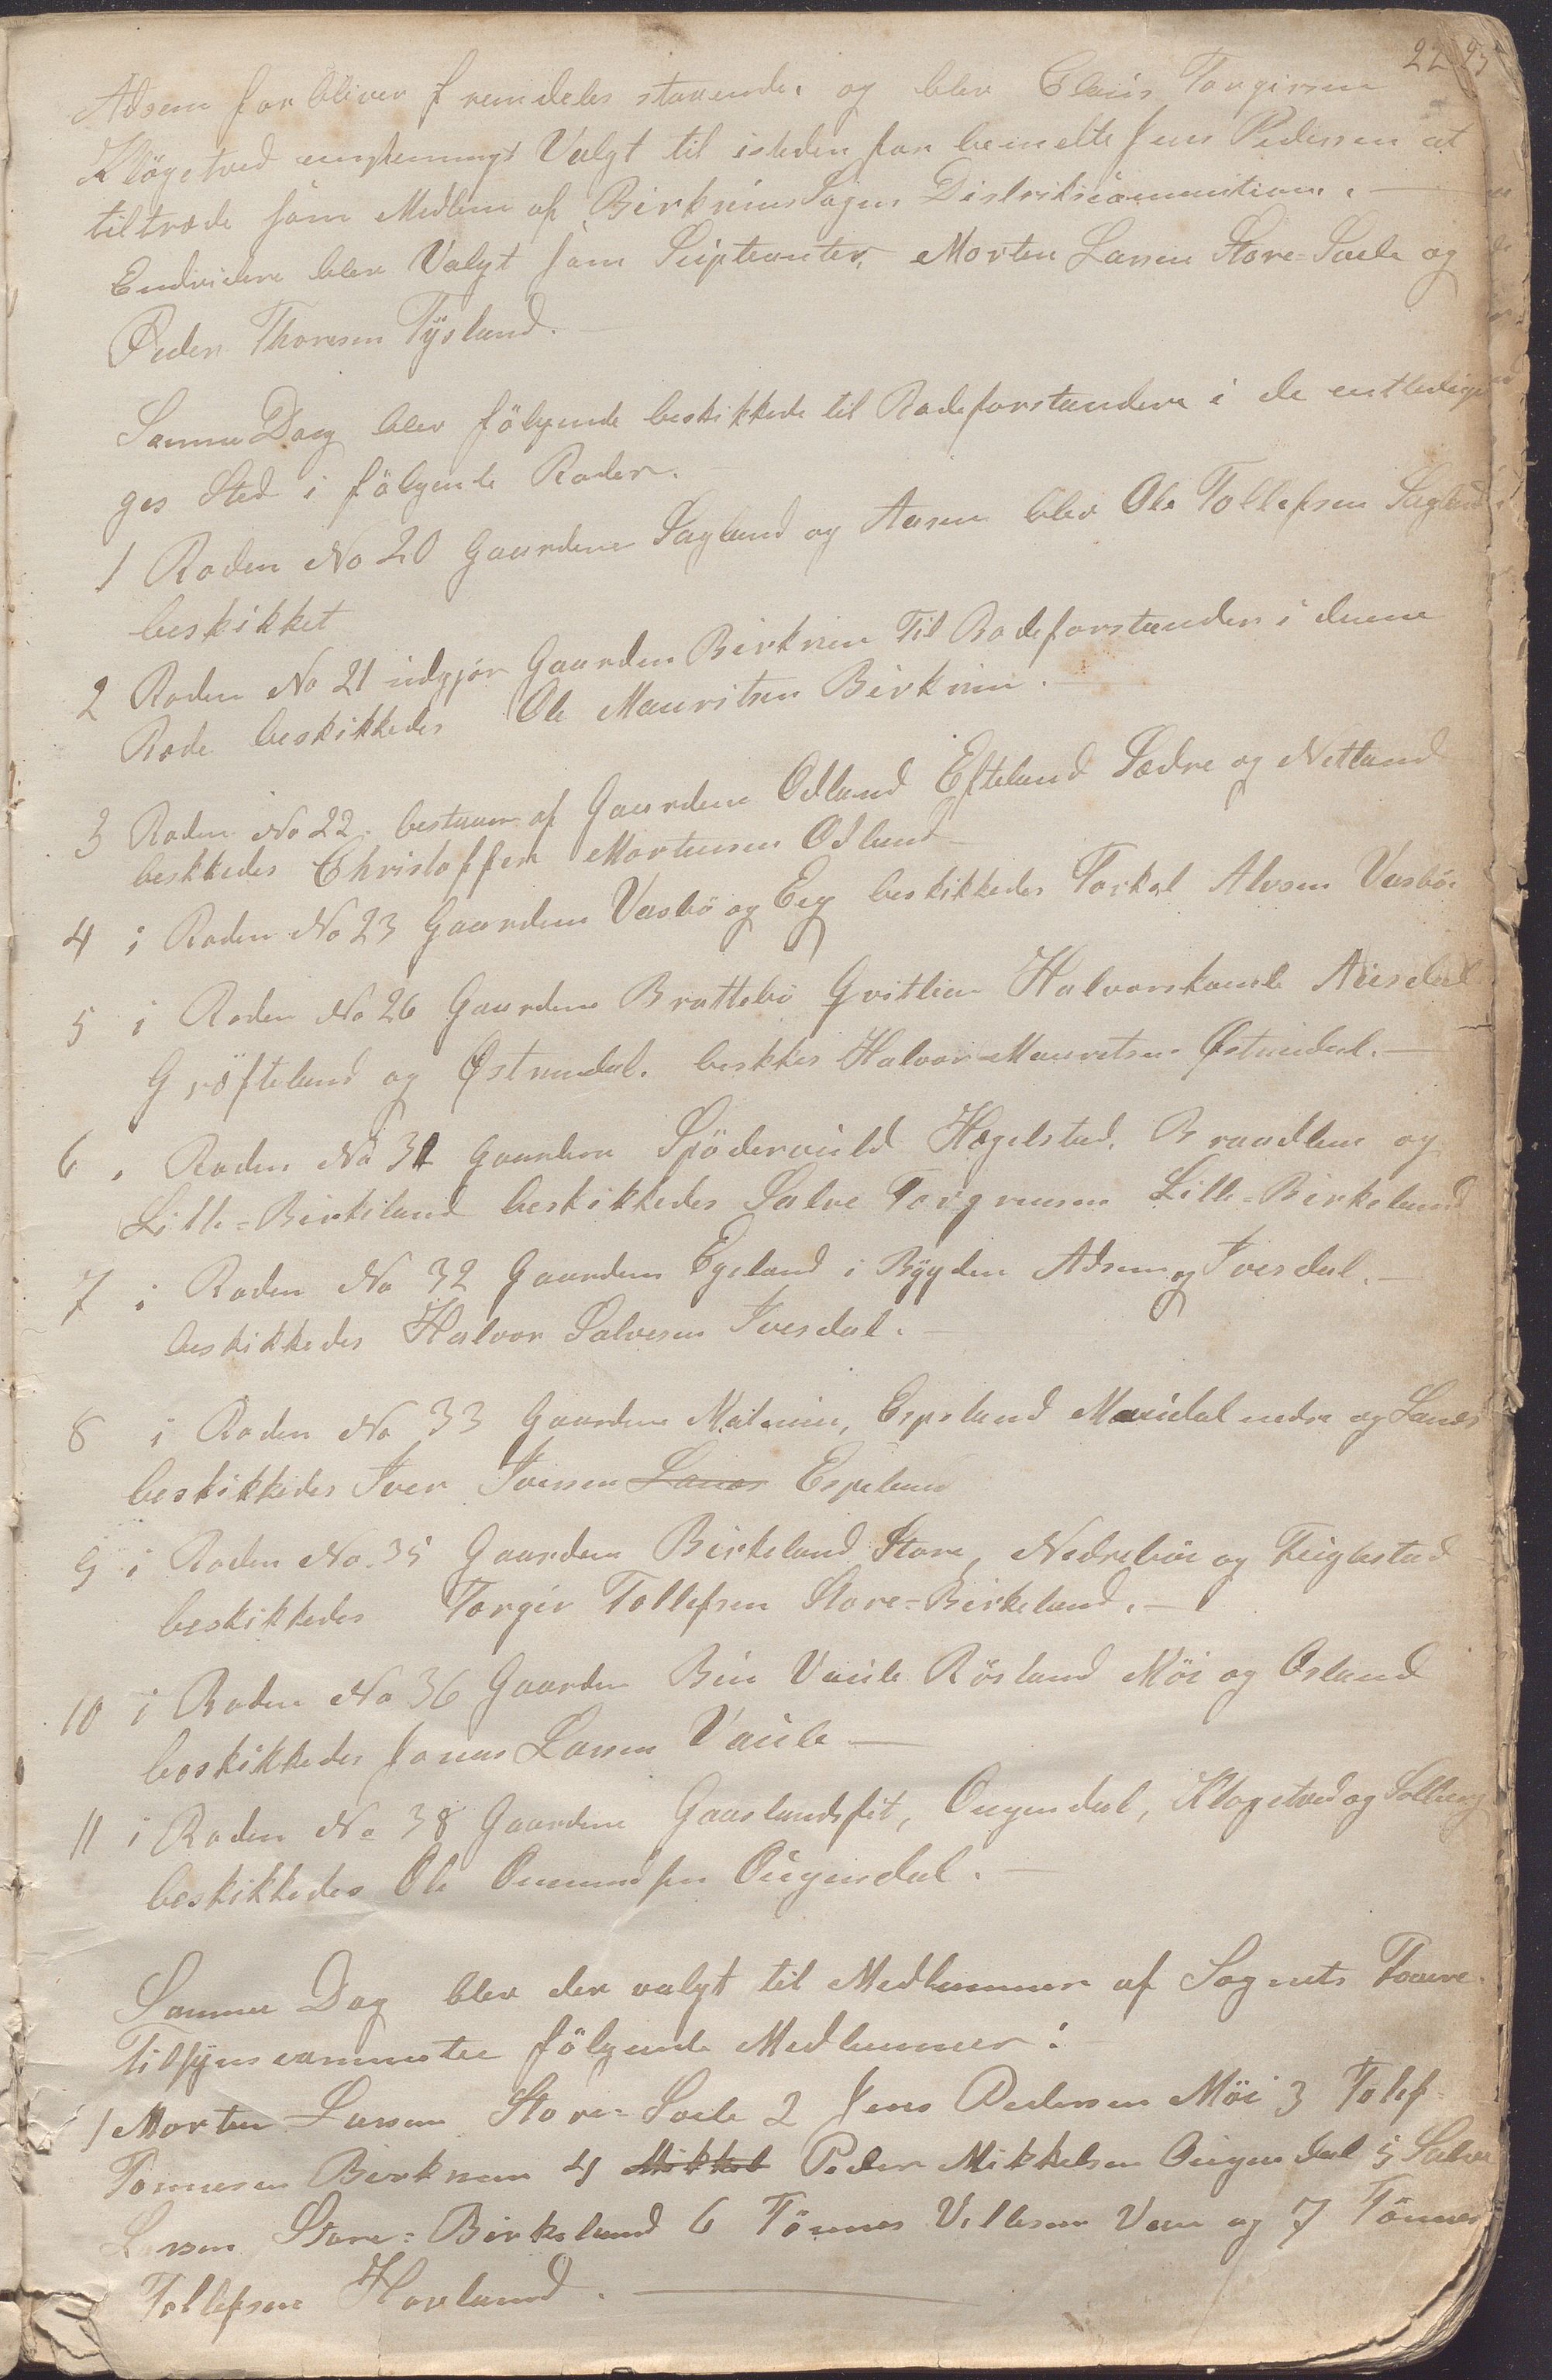 22 23
Adsem forbliver fremdeles staaende. og blev Claus Torgirsen
Kløgetved eenstemmigt Valgt til isteden for bemeldte Jens Pedersen at
tiltræde som Medlem af Birkrims Sogns Distrikscommition. —
Endvidere blev Valgt som Supleanter, Morten Larsen Store-Svele og
Peder Thoresen Tÿsland.
Samme Dag blev fölgende beskikkede til Rodeforstandere i de entledige
ges Sted i fölgende Roder.
1 Roden No 20 Gaardene Sagland og Aasen blev Ole Tollefsen Sagland
beskikket
2 Roden No 21 udgjör Gaarden Birkrem Til Rodeforstander i denne
Rode beskikkedes Ole Mauritsen Birkrim. —
3 Roden No 22. bestaaer af Gaardene Odland Efteland Sædre og Netland
beskkedes Christoffer Mortensen Odland —
4 i Roden No 23 Gaardene Vasbö og Eeg beskikkedes Torkel Alvsen Vasbö.
5 i Roden No 26 Gaardene Brattebö Gvitlien Halvorskamle Ausdal
Gröfteland og Østrumdal. beskkes Halvor Mauritsen Østrumdal. —
6 . Roden No 31 Gaardene Spödervold Hægelstad. Braadlie og
Lille-Birkeland beskikkedes Salve Torgrimsen Lille-Birkeland
7 i Roden No 32 Gaardene Egeland i Bÿgden Adsem og Ivesdal. —
beskikkedes Halvor Salvesen Ivesdal. —
8 i Roden No 33 Gaardene Malmim, Espeland Maudal nedre og Lanes
beskikkedes Iver Iversen Lanes Espeland
9 i Roden No. 35 Gaardene Birkeland Store, Nedrebö og Fuglestad
beskikkedes Torger Tollefsen Store-Birkeland. —
10 i Roden No 36 Gaarden Bue Vaule Rösland Möi og Osland
beskikkedes Jonas Larsen Vaule —
11 i Roden No 38 Gaardene Gaaslandsfit, Ougendal, Klogetved og Solberg
beskikkedes Ole Omundsen Ougendal. —
Samme Dag blev der valgt til Medlemmer af Sognets
Tilsyns committee fölgende Medlemmer:
1 Morten Larsen Store-Svele 2 Jens Pedersen Möi 3 Tolef
Tonnesen Birkrem 4 Mikkel Peder Mikkelsen Ougendal 5 Salve
Larsen Store-Birkeland 6 Tönnes Villesen og 7 Tönnes
Tollefsen Hovland. —